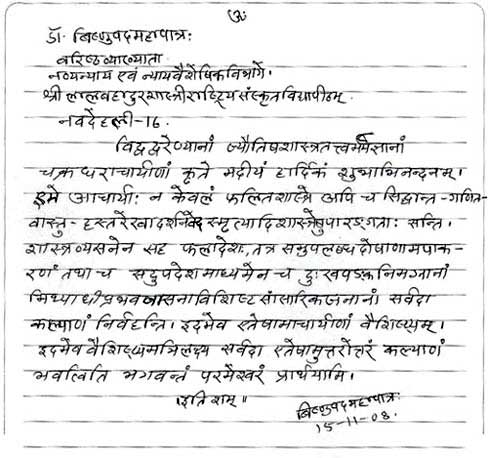 ॐ
डॉ. बिष्णुपदमहापात्र:
वरिष्ठव्याख्याता
नव्यन्याय एवं न्यायवैशेषिकविभागे।
श्री लालबहादुरशास्त्रीराष्ट्रियसंस्कृतविद्यापीठम्
नवदेहली-16.
विद्वद्वरेण्यानां ज्यौतिषशास्त्रतत्त्वमर्मज्ञानां
चक्रधराचार्याणां कृते मदीयं हार्दिकं शुभाभिनन्दनम्।
इमे आचार्या: न केवलं फलितशास्त्रे अपि च सिद्धान्त-गणित-
वास्तु-हस्तरेखादर्शन स्मृत्यादिशास्त्रेषु पारङ्गता: सन्ति।
शास्त्रव्यसनेन सह फलादेश: तत्र समुपलब्धदोषाणामपाक-
रणं तथा च सदुपदेशमाध्यमेन च दु:खपङ्कनिमग्नानां
मिथ्याधीप्रभववासनाविशिष्टसांसारिकजनानां सर्वदा
कल्याणं निर्वहन्ति। इदमेव एतेषामाचार्याणां वैशिष्ट्यम्।
इदमेव वैशिष्ट्यमभिलक्ष्य सर्वदा एतेषामुत्तरोत्तरं कल्याणं
भवत्विति भगवन्तं परमेश्वरं प्रार्थयामि।
। इति शम् ॥
बिष्णुपदमहापात्र:
15-11-08.